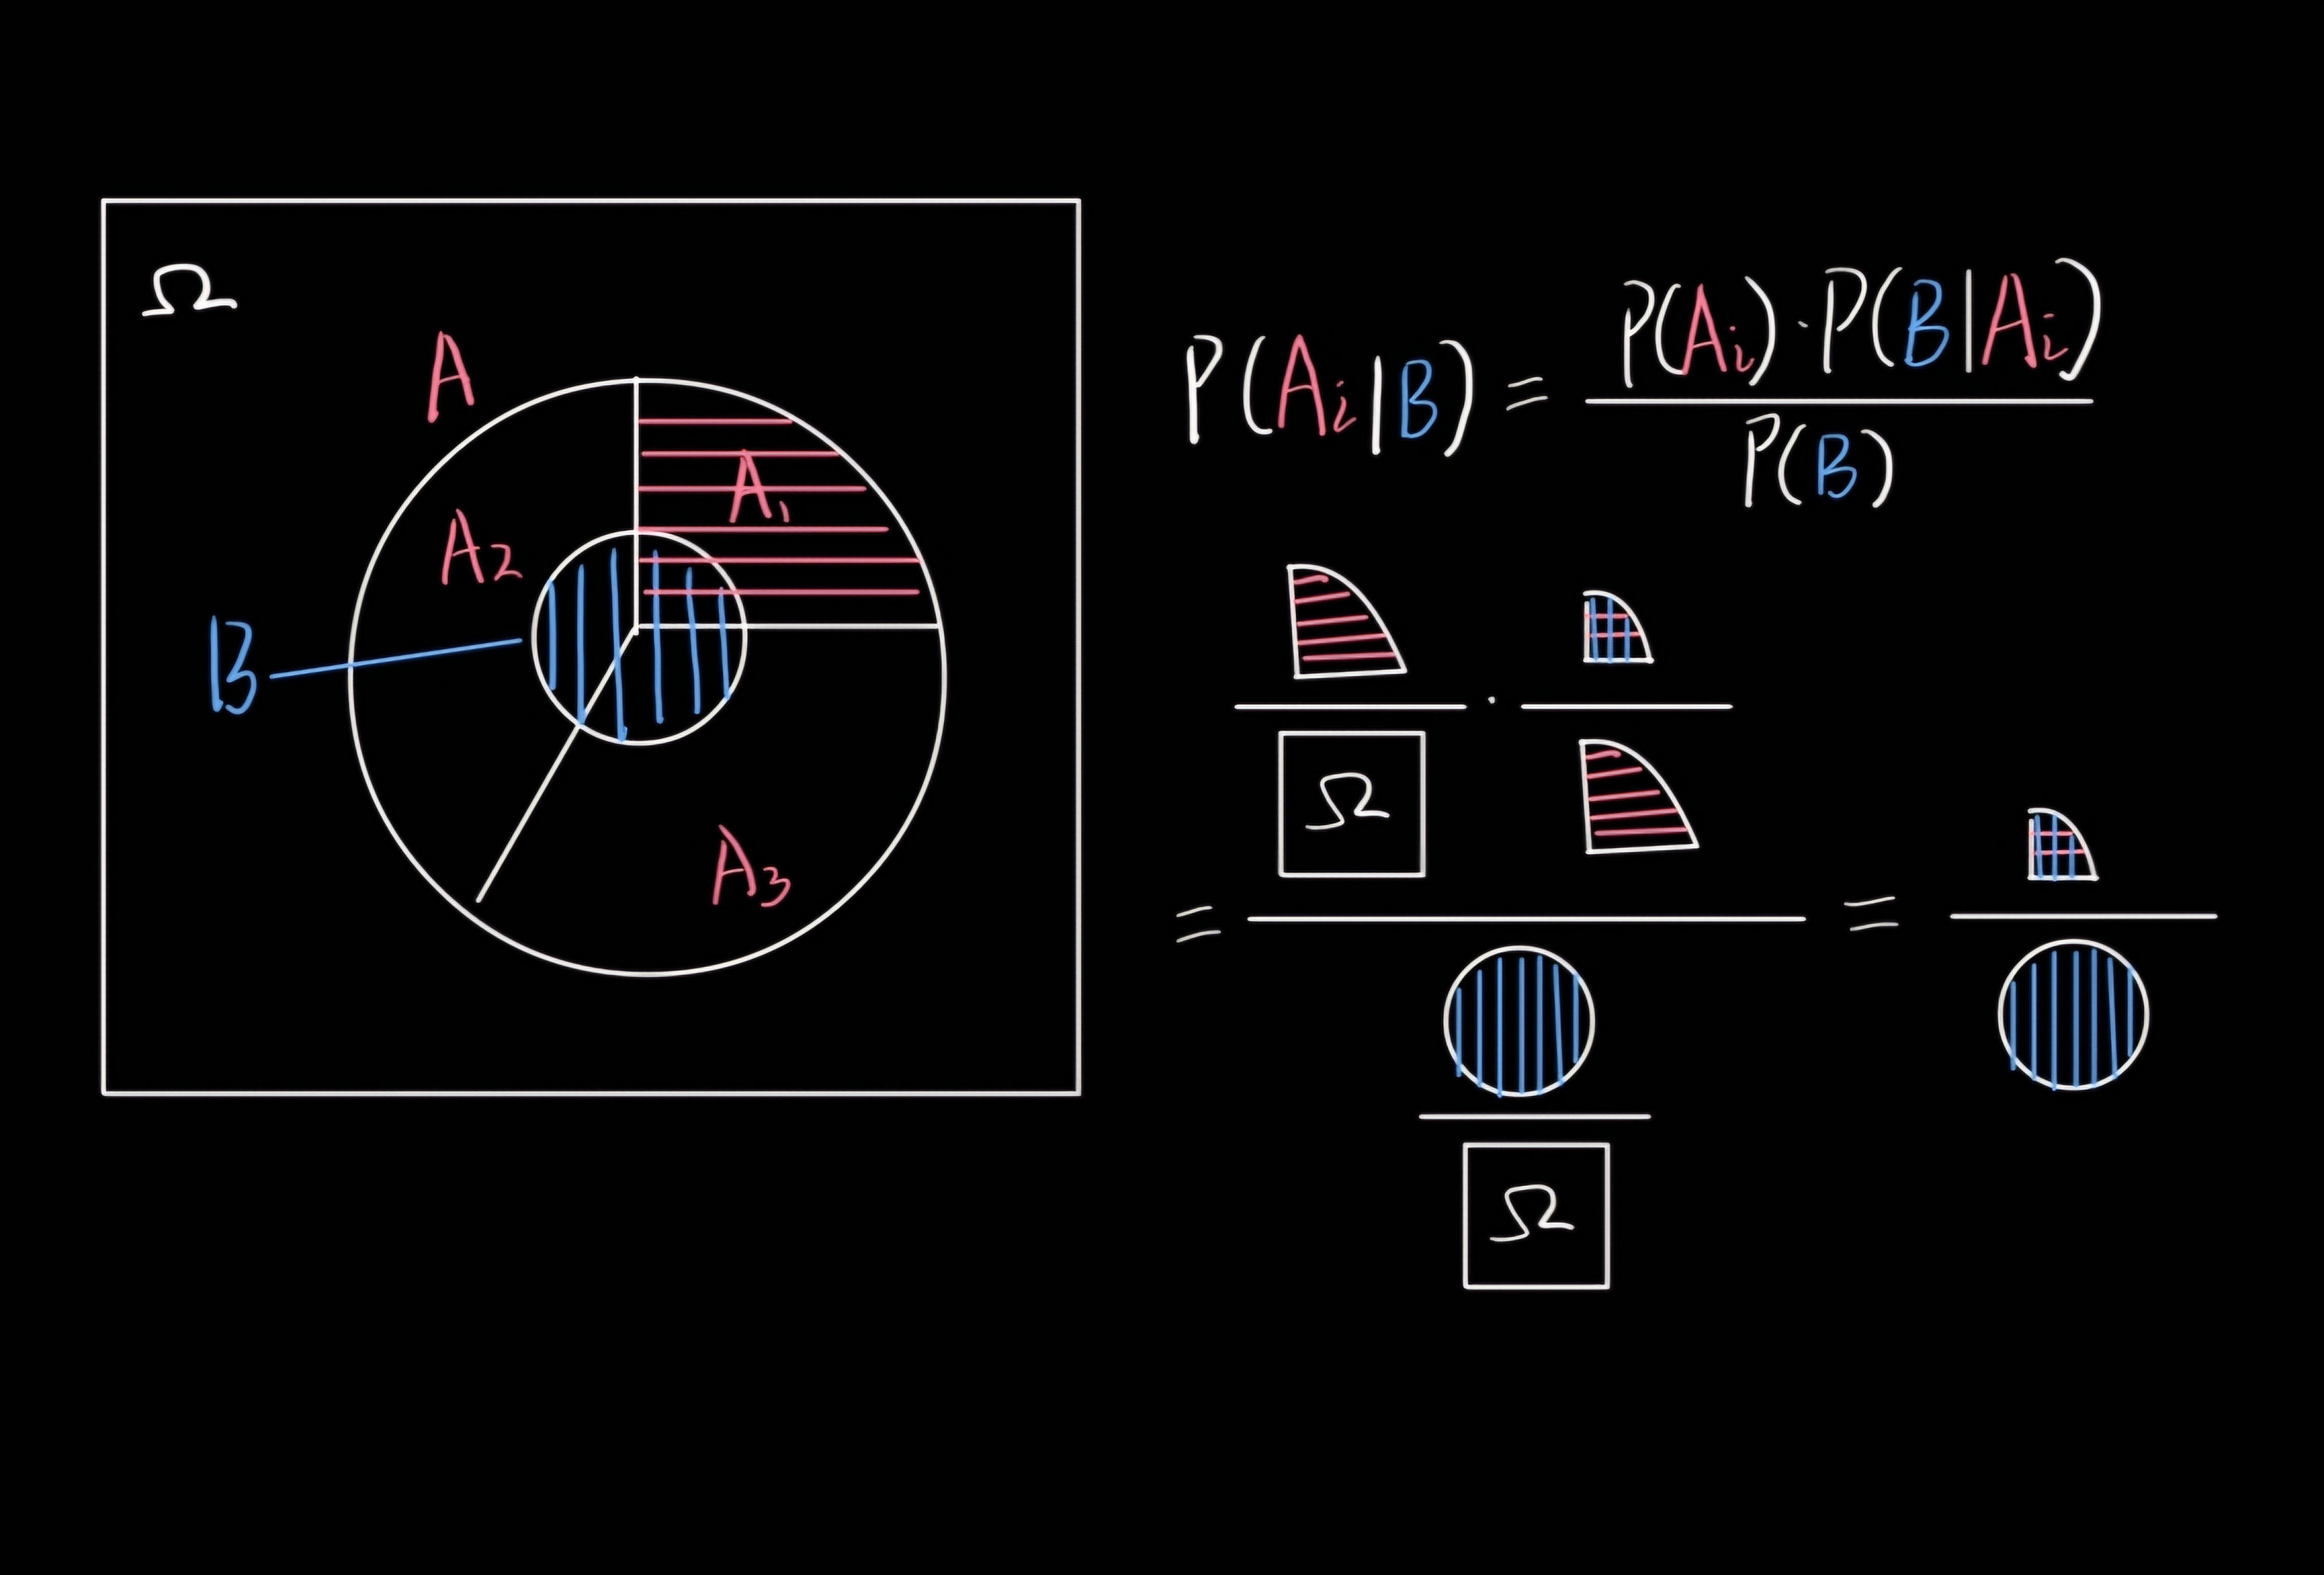 Ω
A
A₁
A₂
B
A₃
P(Aᵢ|B) = P(Aᵢ)·P(B|Aᵢ) / P(B)
Ω
=
=
Ω